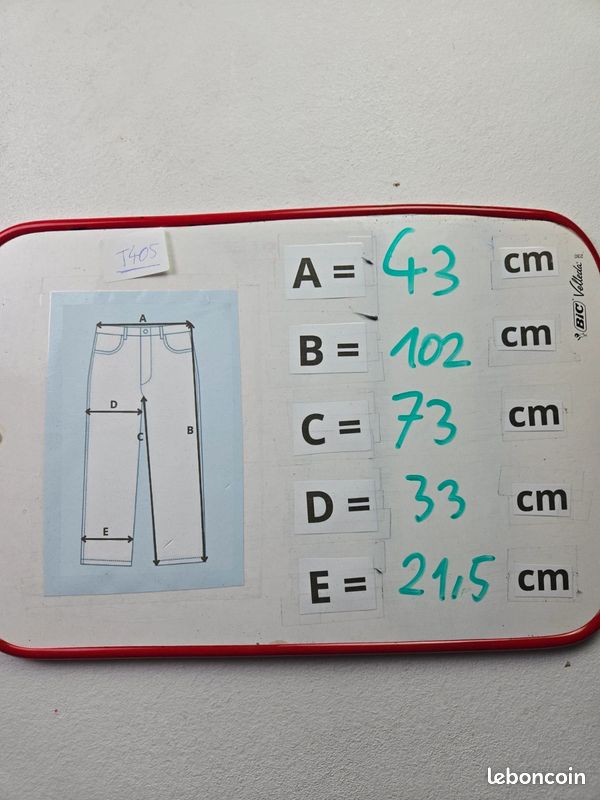 T405
A = 43 cm
B = 102 cm
C = 73 cm
D = 33 cm
E = 21,5 cm
A
D
B
C
E
BIC Velleda
leboncoin